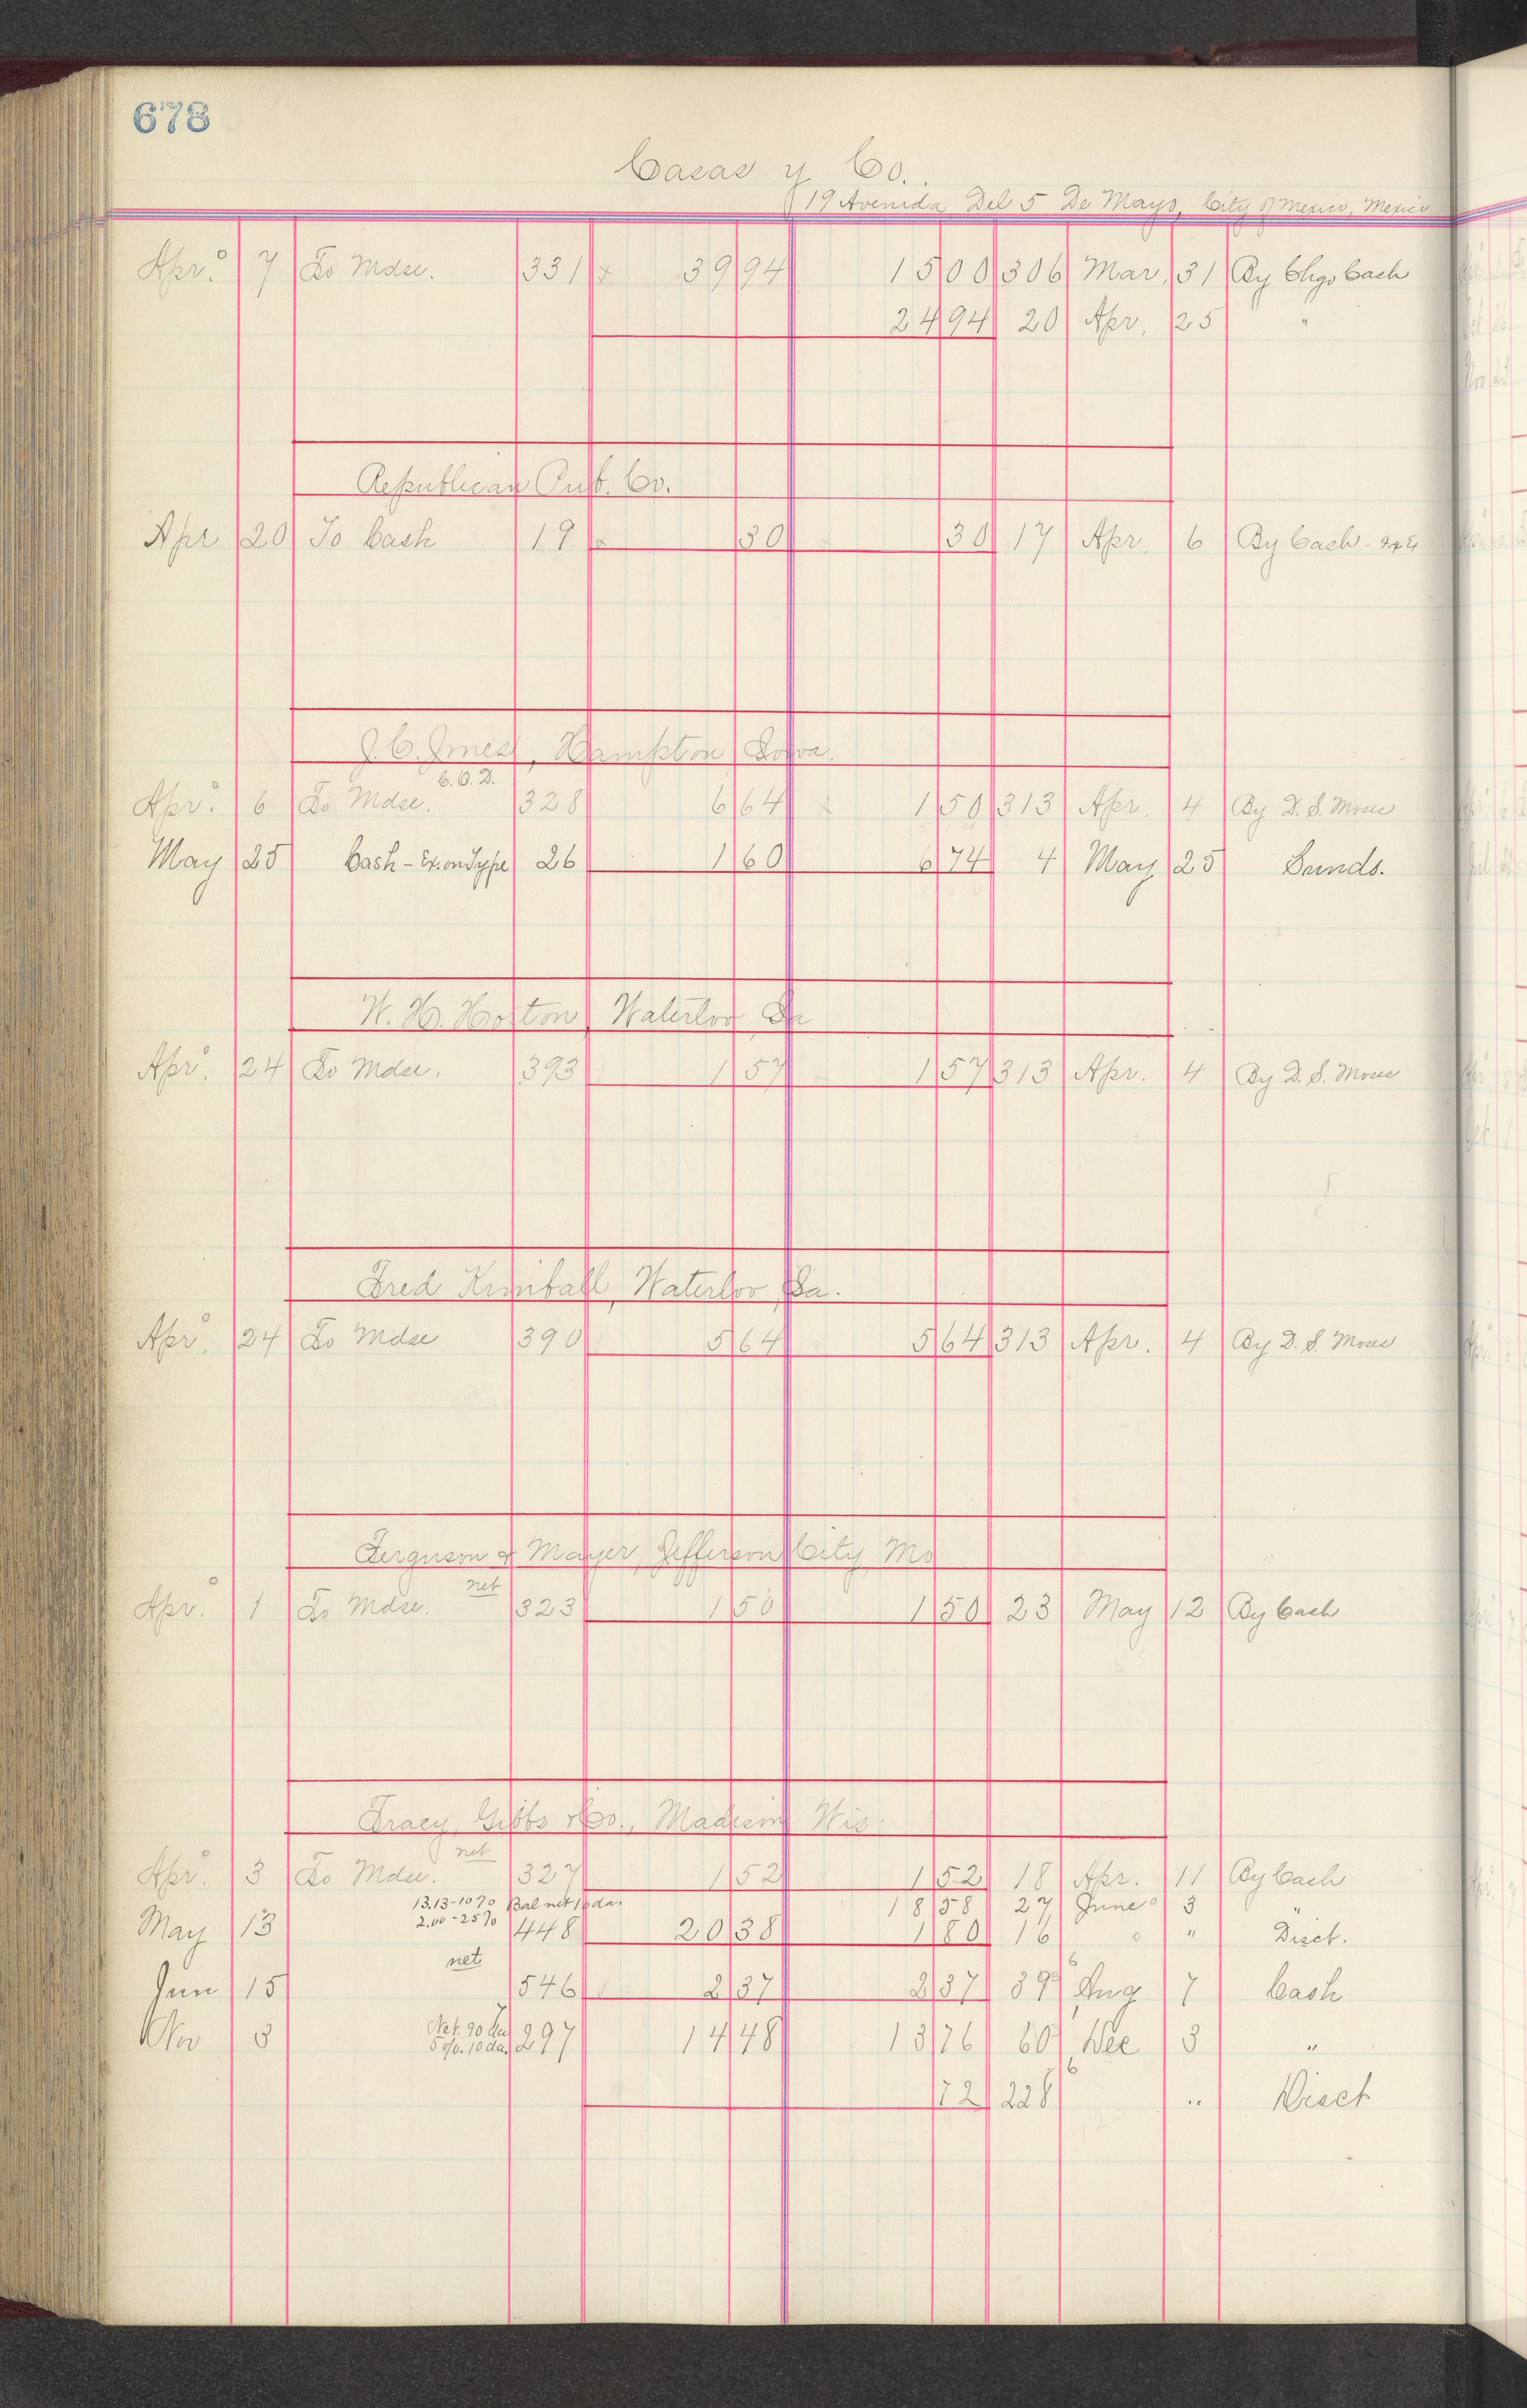 678
Casas y Co.
19 Avenida Del 5 De Mayo, City of Mexico, Mexico
Apr. 7 To Mdse. 331 39 94 15 00 306 Mar. 31 By Chgo Cash
24 94 20 Apr. 25 "
Republican Pub. Co.
Apr 20 To Cash 19 30 30 17 Apr. 6 By Cash
J. C. Jones, Hampton Iowa.
C.O.D.
Apr. 6 To Mdse. 328 6 64 1 50 313 Apr. 4 By D. S. Moses
May 25 Cash - Ex. on Type 26 1 60 6 74 4 May 25 Sunds.
W. H. Horton, Waterloo Ia
Apr. 24 To Mdse. 393 1 57 1 57 313 Apr. 4 By D. S. Moses
Fred Kimball, Waterloo, Ia.
Apr. 24 To Mdse 390 5 64 5 64 313 Apr. 4 By D. S. Moses
Ferguson & Mayer, Jefferson City, Mo
net
Apr. 1 To Mdse. 323 1 50 1 50 23 May 12 By Cash
Tracy, Gibbs & Co., Madison Wis.
net
Apr. 3 To Mdse. 327 1 52 1 52 18 Apr. 11 By Cash
13.13-10% Bal net 10 da. 18 58 27 June 3 "
May 13 2.00-25% 448 20 38 1 80 16 " Disct.
net
Jun 15 546 2 37 2 37 39 Aug 7 Cash
Nov 3 Net. 90 da 5%. 10 da. 297 14 48 13 76 60 Dec 3 "
72 228 " Disct